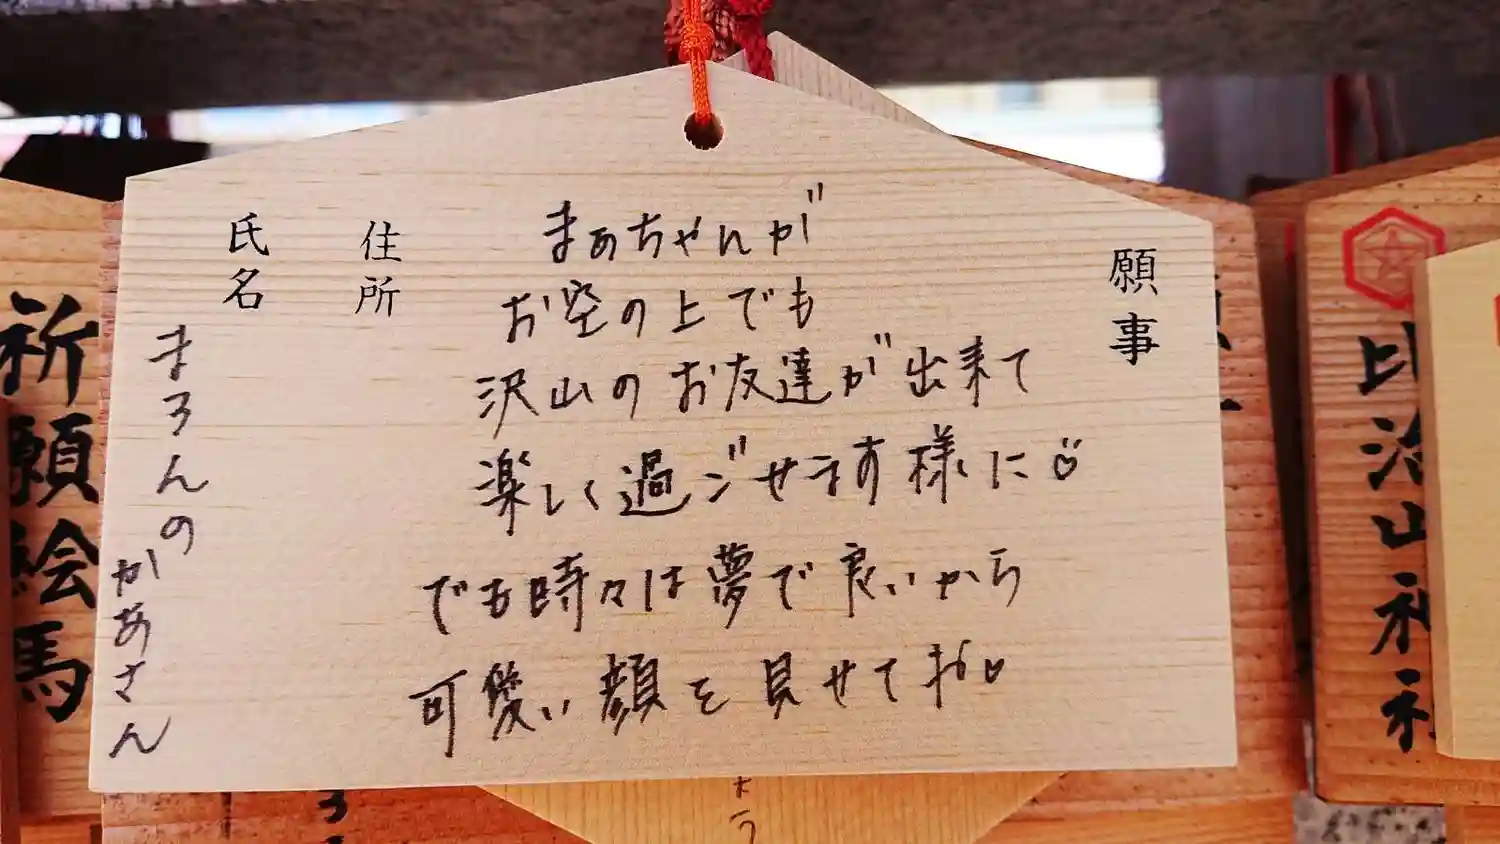 願事
まぁちゃんが
お空の上でも
沢山のお友達が出来て
楽しく過ごせます様に
でも時々は夢で良いから
可愛い顔を見せてね♡
住所
氏名
まろんの
かあさん
祈願絵馬
比治山神社